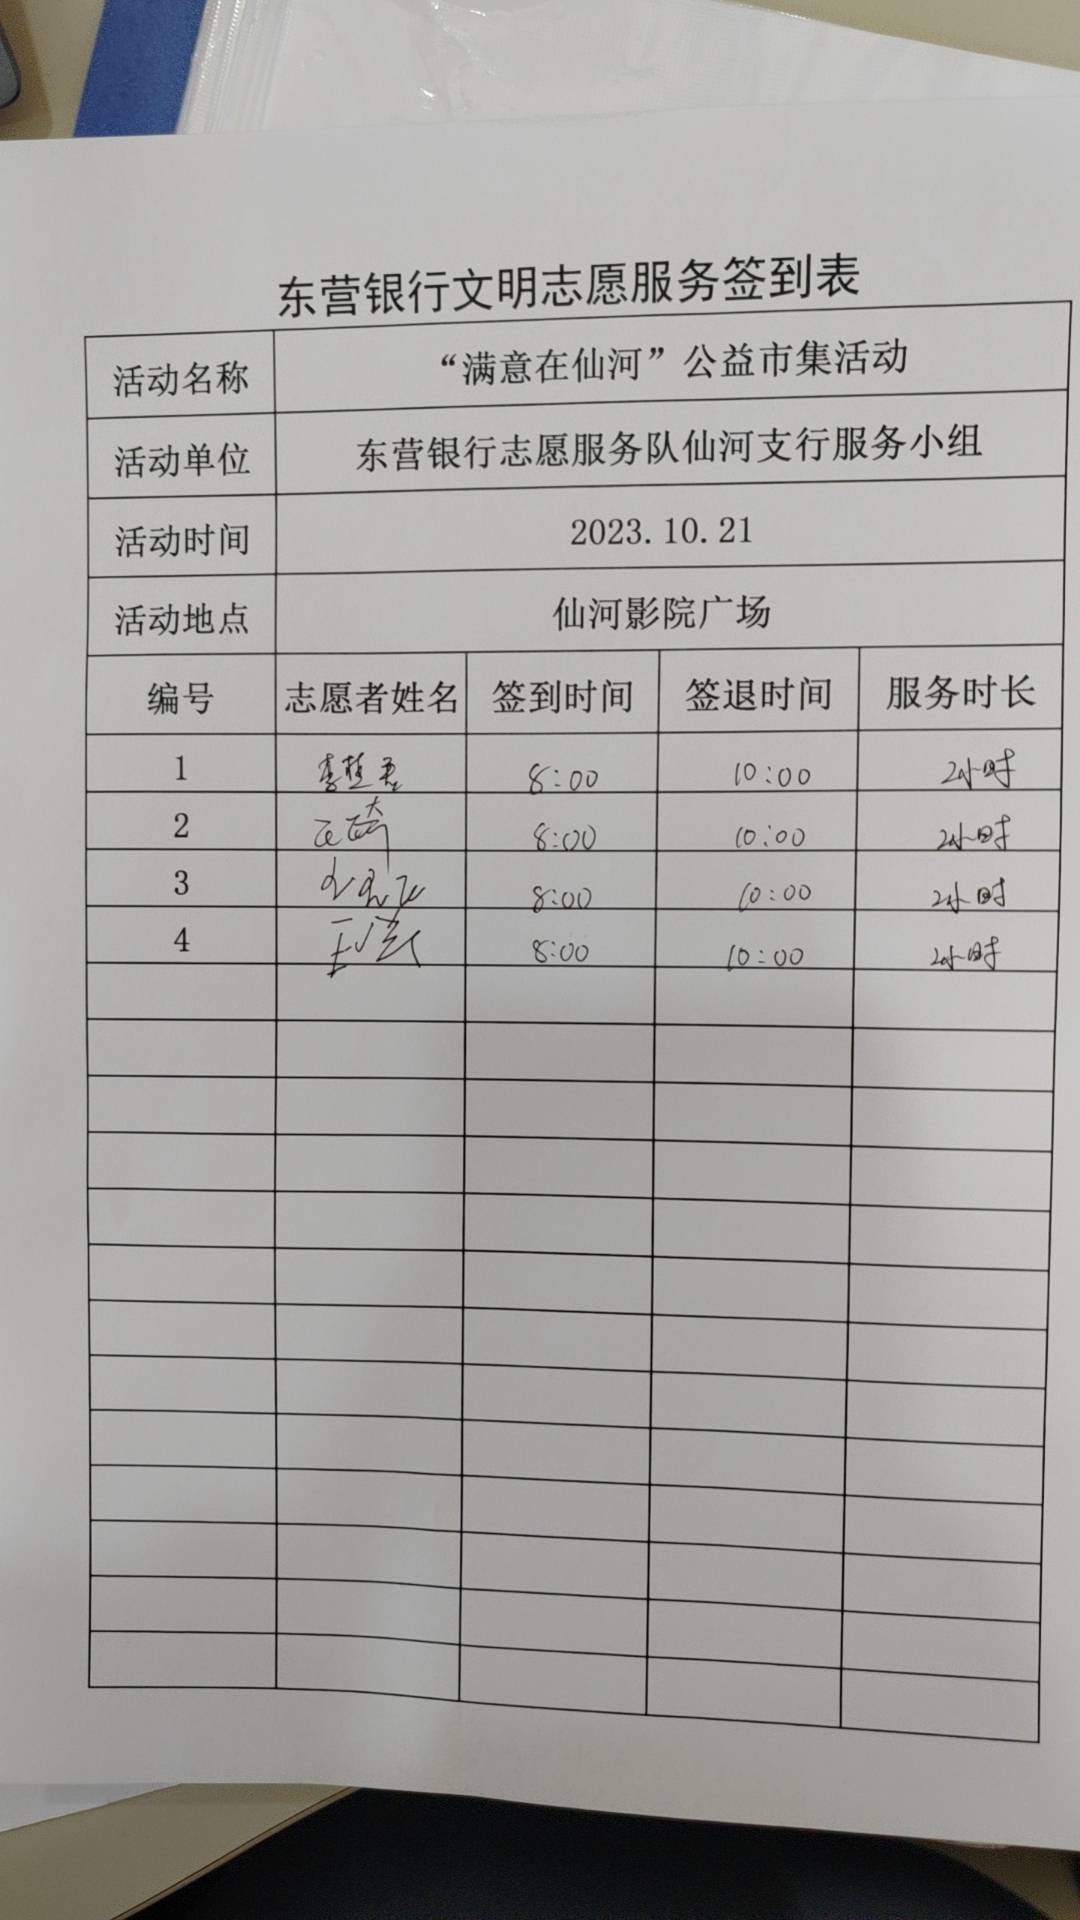 东营银行文明志愿服务签到表
活动名称 “满意在仙河”公益市集活动
活动单位 东营银行志愿服务队仙河支行服务小组
活动时间 2023.10.21
活动地点 仙河影院广场
编号 志愿者姓名 签到时间 签退时间 服务时长
1 8:00 10:00 2小时
2 8:00 10:00 2小时
3 8:00 10:00 2小时
4 8:00 10:00 2小时